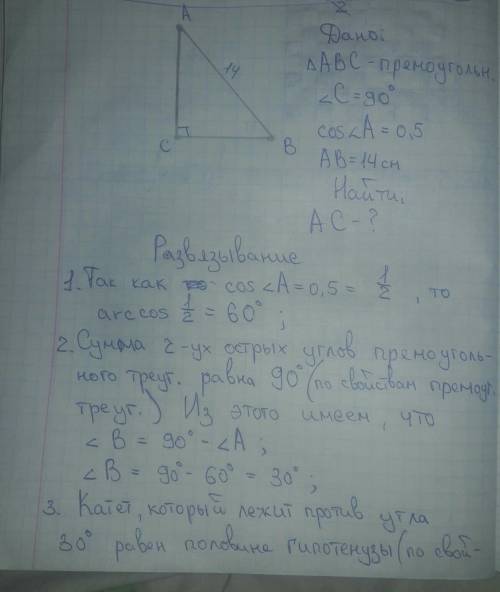 A
14
C
B
Дано:
△ABC - премоугольн.
∠C = 90°
cos∠A = 0,5
AB = 14 см
Найти:
AC - ?
Развязывание
1. Так как cos∠A = 0,5 = 1/2, то
arccos 1/2 = 60°;
2. Сумма 2-ух острых углов премоуголь-
ного треуг. равна 90° (по свойствам премоуг.
треуг.) Из этого имеем, что
∠B = 90° - ∠A;
∠B = 90° - 60° = 30°;
3. Катет, который лежит против угла
30° равен половине гипотенузы (по свой-